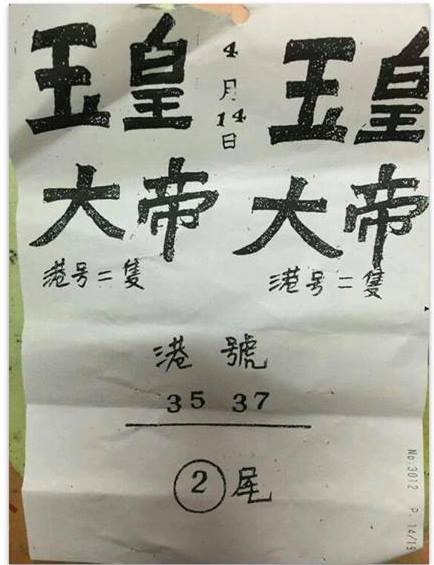 玉皇
大帝
港号二隻
4
月
14
日
玉皇
大帝
港号二隻
港號
35 37
2尾
No.3012 P. 14/15